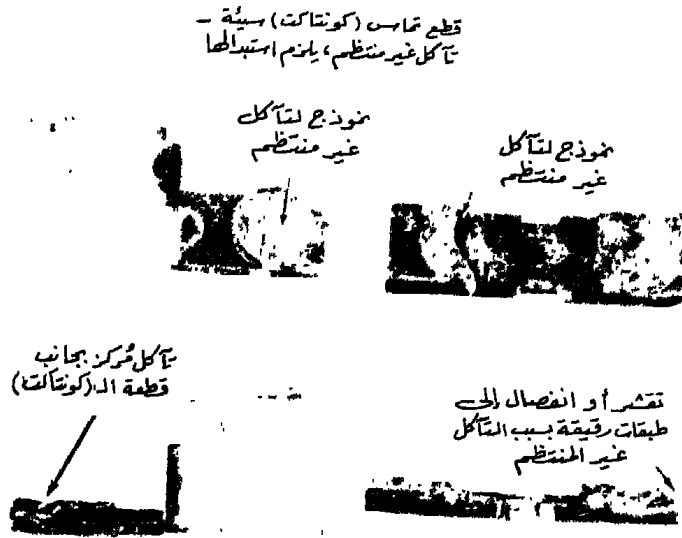 قطع تماس (كونتاكت) سيئة -
تآكل غير منتظم، يلزم استبدالها
نموذج لتآكل
غير منتظم
نموذج لتآكل
غير منتظم
تآكل مُركز بجانب
قطعة الـ(كونتاكت)
تقشر أو انفصال إلى
طبقات رقيقة بسبب التآكل
غير المنتظم